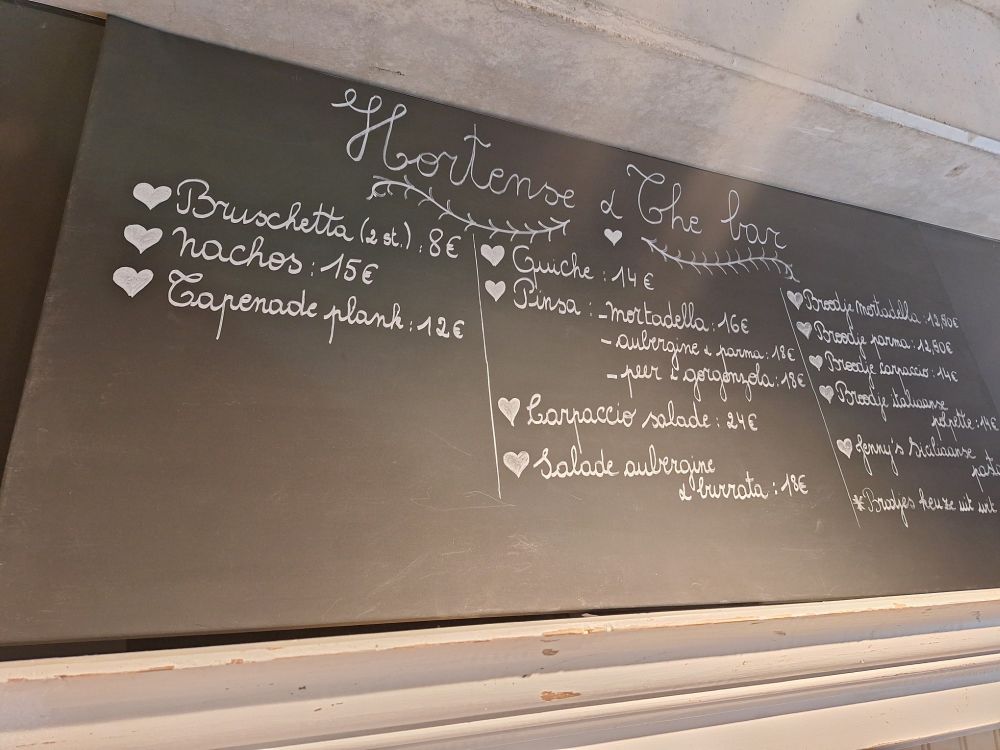 Hortense & The bar
Bruschetta (2 st.) : 8€
nachos : 15€
Tapenade plank : 12€
Quiche : 14€
Pinsa : - mortadella : 16€
- aubergine & parma : 18€
- peer & gorgonzola : 18€
Carpaccio salade : 24€
Salade aubergine
& burrata : 18€
Broodje mortadella : 12,50€
Broodje parma : 12,50€
Broodje carpaccio : 14€
Broodje italiaanse
polpette : 14€
Jenny's Siciliaanse
pasta
* Broodjes keuze uit wit